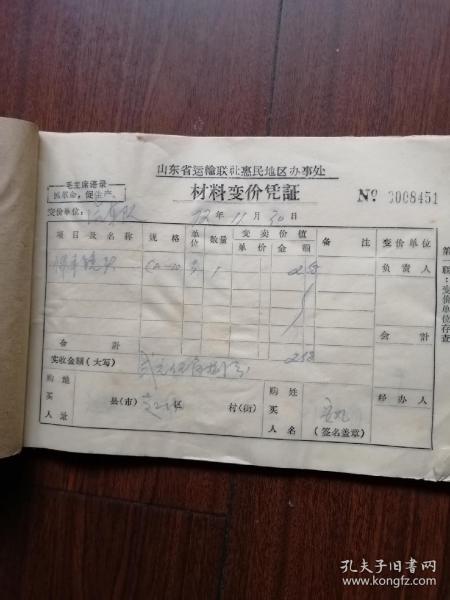 山东省运输联社惠民地区办事处
毛主席语录
抓革命,促生产。
材料变价凭証
Nº 0008451
变价单位:
72年11月30日
项目及名称 规格 单位 数量 变卖价值 备注 变价单位
单价 金额 负责人
CA-10 1
会計
合計
实收金额(大写)
购买人 地址 县(市) 区 村(街) 购买人 姓名 (签名盖章) 经办人
第一联:变价单位存查
孔夫子旧书网
www.kongfz.com